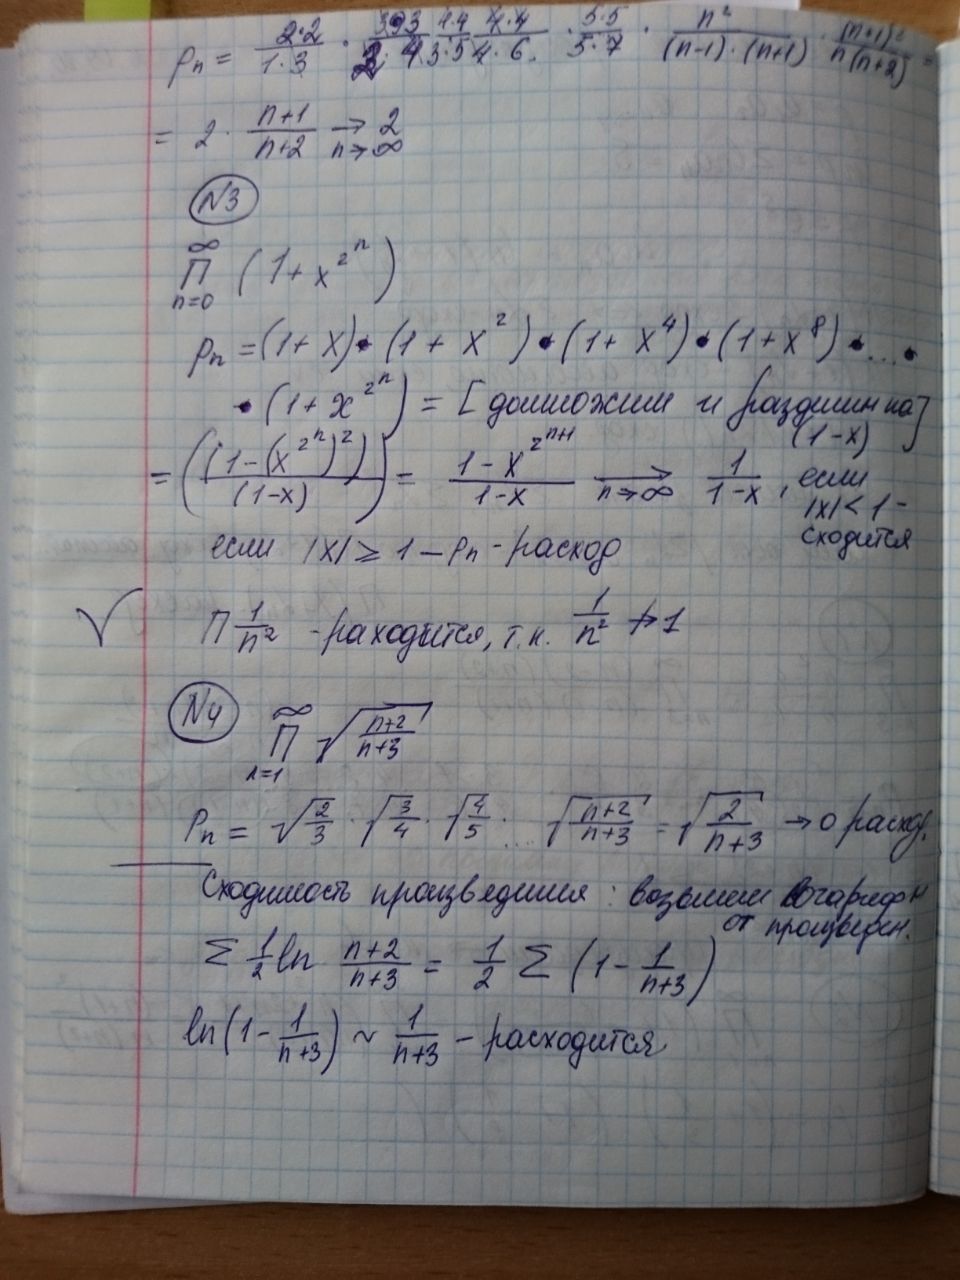 Pn = 2·2/1·3 · 3·3/2·4 · 4·4/3·5 · 4·4/4·6 · 5·5/5·7 · n²/(n-1)·(n+1) · (n+1)²/n(n+2) =
= 2 · n+1/n+2 → 2 n→∞
N3
∞ П n=0 (1+x^2^n)
pn = (1+x)·(1+x²)·(1+x⁴)·(1+x⁸)·...·
·(1+x^2^n) = [домножим и разделим на (1-x)]
= ((1-(x^2^n)²)/(1-x)) = 1-x^2^n+1/1-x → n→∞ 1/1-x, если |x|<1 - сходится
если |x| ≥ 1 – pn - расход
√ П 1/n² - расходится, т.к. 1/n² ↛ 1
N4
∞ П n=1 √(n+2/n+3)
Pn = √(2/3) · √(3/4) · √(4/5) ... √(n+2/n+3) = √(2/n+3) → 0 расход.
Сходимость произведения : возьмем
от произведен.
Σ 1/2 ln n+2/n+3 = 1/2 Σ (1 - 1/n+3)
ln(1 - 1/n+3) ~ 1/n+3 – расходится